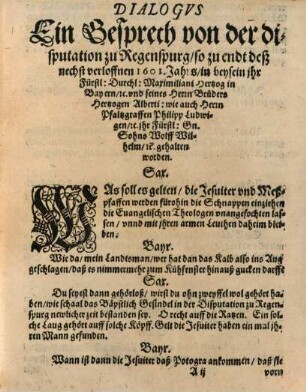 DIALOGVS
Ein Gesprech von der di-
sputation zu Regenspurg/so zu endt deß
nechst verloffnen 1601. Jahrs/in beysein jhr
Fürstl: Durchl: Maximiliani Hertzog in
Bayern/rc. vnd seines Herrn Brüders
Hertzogen Alberti: wie auch Herrn
Pfaltzgraffen Philipp Ludwi-
gen/rc. jhr Fürstl: Gn.
Sohns Wolff Wil-
helm/rc. gehalten
worden.
Sax.
WAs soll es gelten/ die Jesuiter vnd Meß-
pfaffen werden fürohin die Schnappen einziehen
die Euangelischen Theologen vnangefochten las-
sen/ vnnd mit jhren armen Leuthen daheim blei-
ben.
Bayr.
Wie da/ mein Landtsman/ wer hat dan das Kalb also ins Aug
geschlagen/ daß es nimmemehr zum Küfenster hinauß gucken darff?
Sax.
Du seyst dann gehörloß/ wirst du ohn zweyffel wol gehört ha-
ben/ wie schaal das Bäpstlich Gesindel in der Disputation zu Regen-
spurg newlicher zeit bestanden sey. O recht auff die Ratzen. Ein sol-
che Laug gehört auff solche Köpff. Gelt die Jesuiter haben ein mal jh-
ren Mann gefunden.
Bayr.
Wann ist dann die Jesuiter daß Potogra ankommen/ daß sie
A ij
vorm